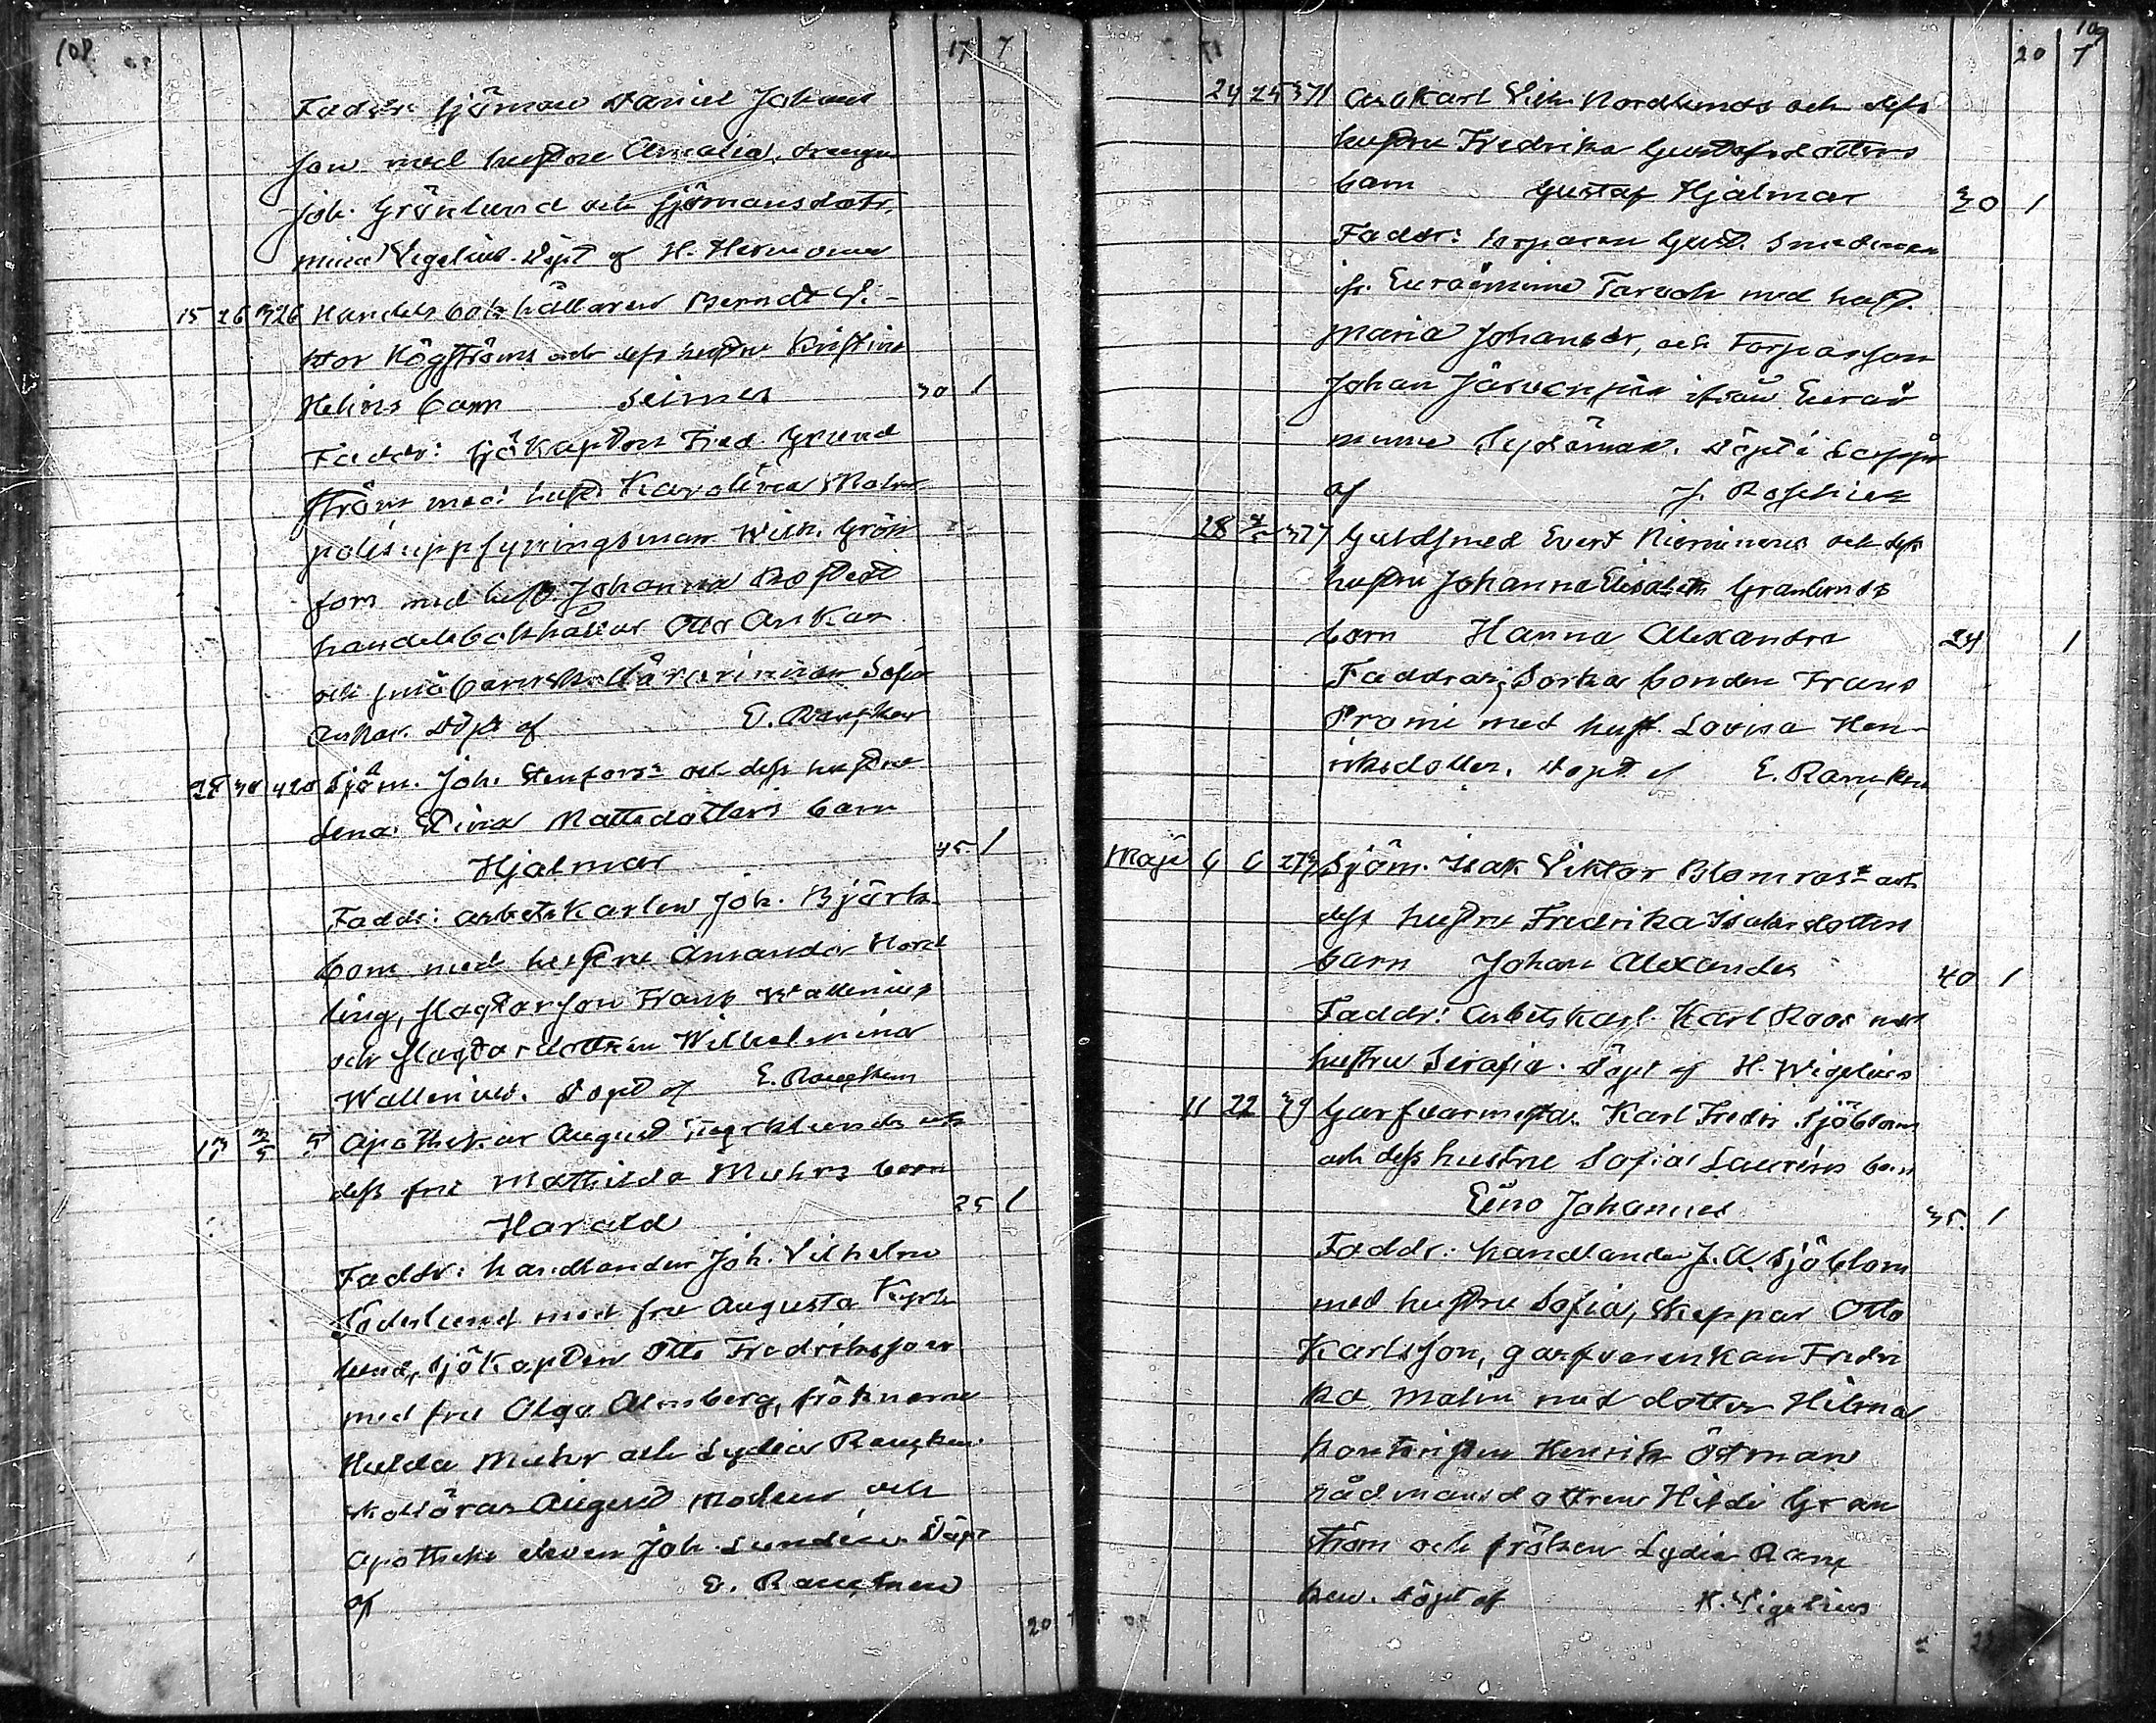 108 17 7
Faddr: sjöman Daniel Johans
son med hustru Amalia, drängen
Joh. Grönlund och sjömansdotr.
Mina Vigelius. Döpt af H. Hermonen
15 26 326 Handelsbokhållaren Berndt Vi-
ktor Högströms och dess hustru Kristina
Helins barn Selmer 30 1
Faddr: sjökapten Fred. Grund
ström med hust. Karolina Malm
polisuppsyningsman Wilh. Grön
fors med hust. Johanna
handelsbokhållar Otto Ankar
och småbarnskollärarinnan Sofia
Ankar. Döpt af E. Rancken
28 30 420 Sjöm. Joh. Stenfors och dess hustru
Lena Stina Mattsdotters barn
Hjalmar 45. 1
Faddr: arbetskarlen Joh. Björk
bom med hustru Amanda Nord
ling, slagtarson Frans Wallenius
och slagtardottren Wilhelmina
Wallenius. Döpt af E. Rancken
13 3/5 5 Apothekar August Kyrklunds och
dess fru Mathilda Muhrs barn
Harald 25 1
Faddr: handlanden Joh. Vilhelm
Söderlund med fru Augusta Kyrk
lund, sjökapten Otto Fredriksson
med fru Olga Almberg, fröknarne
Hulda Muhr och Lydia Rancken
August Modeen och
apotheks eleven Joh. Lundén. Döpt
af E. Rancken
20
109
20 7
24 25 371 Arbkarl Vilh. Nordlunds och dess
hustru Fredrika Gustafsdotters
barn Gustaf Hjalmar 30 1
Faddr: torparen Gust. Smedman
ifr. Euraåminne Tarvola med hust.
Maria Johansdr, och Torparson
Johan Järvenpää ifrån Euraå
minne Sydänmaa. Döpt i Lappi
af J. Roschier
28 4/5 377 Guldsmed Evert Nieminens och dess
hustru Johanna Elisabeth Granlunds
barn Hanna Alexandra 24 1
Faddrar; Sorkas bonden Frans
Prami med hust. Lovisa Hen-
riksdotter. Döpt af E. Rancken
Maji 6 6 279 Sjöm. Isak Viktor Blomroos och
dess hustru Fredrika Isaksdotters
barn Johan Alexander 40 1
Faddr: Arbetskarl Karl Roos med
hustru Serafia. Döpt af H. Wigelius
11 22 39 Garfvarmästar Karl Fredr. Sjöblom
och dess hustru Sofia Lauréns barn
Eino Johannes 35. 1
Faddr: handlanden J. A. Sjöblom
med hustru Sofia, skeppar Otto
Karlsson, garfvarenkan Fredri
ka Malin med dotter Hilma
kontoristen Henrik Öhman
rådmansdottren Hilda Gran
ström och fröken Lydia Ranc
ken. Döpt af H. Vigelius